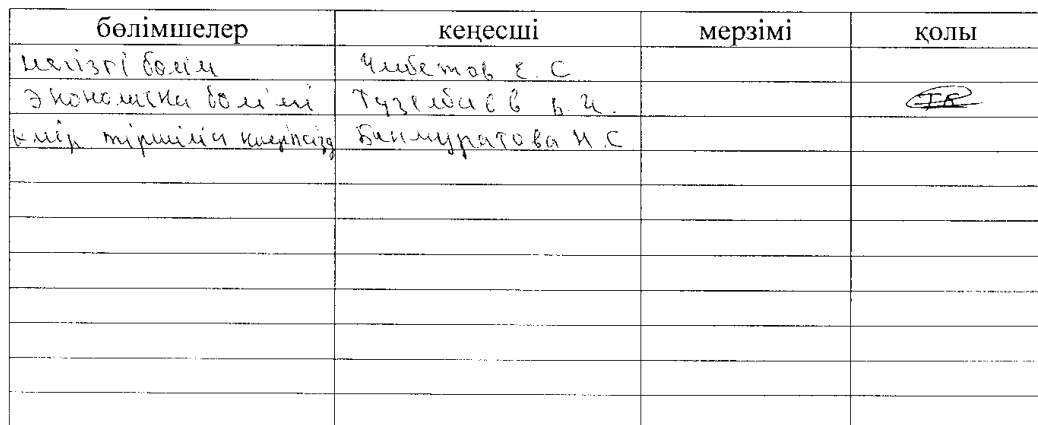 бөлімшелер кеңесші мерзімі қолы
негізгі бөлім Чимбетов Е. С
Экономика бөлімі Түзелбаев Б. И.
тіршілік Бекмуратова Н. С